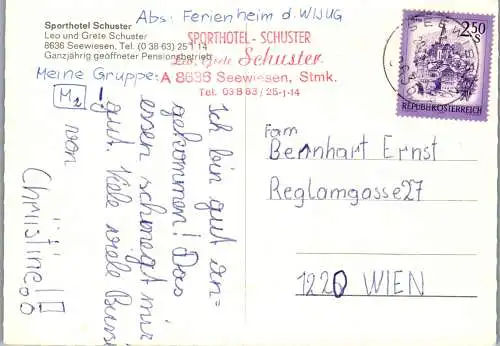 Abs: Ferienheim d. WIJUG
Sporthotel Schuster
Leo und Grete Schuster
8636 Seewiesen, Tel. (0 38 63) 25 1 14
Ganzjährig geöffneter Pensionsbetrieb
SPORTHOTEL - SCHUSTER
Leo, Grete Schuster
A 8636 Seewiesen, Stmk.
Tel. 03 8 63 / 25-1-14
Meine Gruppe:
M2
Ich bin gut an=
gekommen! Das
essen schmegt mir
gut. Viele viele Bussi
von
Christine!
2,50
S
REPUBLIK ÖSTERREICH
Fam
Bernhart Ernst
Reglamgasse 27
1220 WIEN